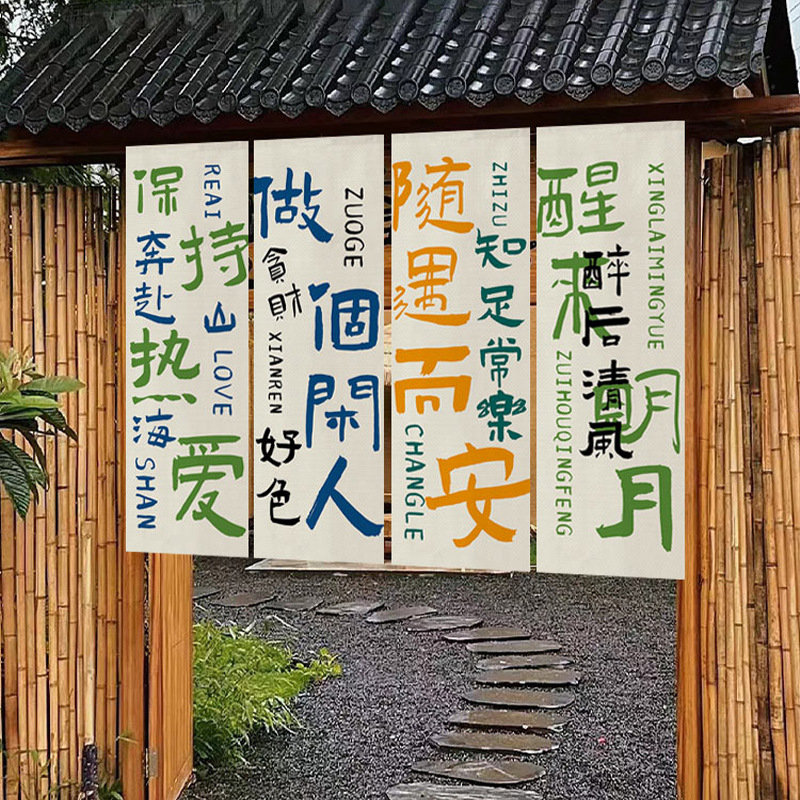 保持热爱
奔赴山海
REAI
LOVE
SHAN
做個閑人
貪財好色
ZUOGE
XIANREN
隨遇而安
知足常樂
ZHIZU
CHANGLE
醒来明月
醉后清風
XINGLAIMINGYUE
ZUIHOUQINGFENG